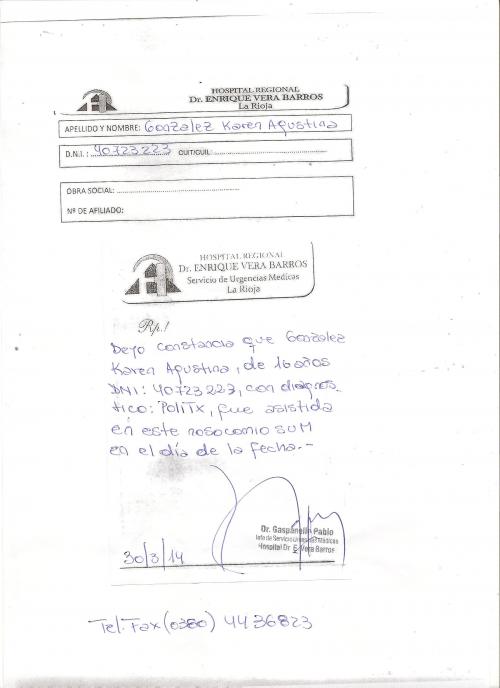 HOSPITAL REGIONAL
Dr. ENRIQUE VERA BARROS
La Rioja
APELLIDO Y NOMBRE: Gonzalez Karen Agustina
D.N.I.: 40723223 CUIT/CUIL:
OBRA SOCIAL:
Nº DE AFILIADO:
HOSPITAL REGIONAL
Dr. ENRIQUE VERA BARROS
Servicio de Urgencias Medicas
La Rioja
Rp./
Dejo constancia que Gonzalez
Karen Agustina, de 16 años
DNI: 40723223, con diagnos
tico: PoliTx, fue asistida
en este nosocomio SUM
en el día de la fecha.-
Dr. Gaspanello Pablo
Jefe de Servicio Urgencias Médicas
Hospital Dr. E. Vera Barros
30/3/14
Tel-Fax (0380) 4436823